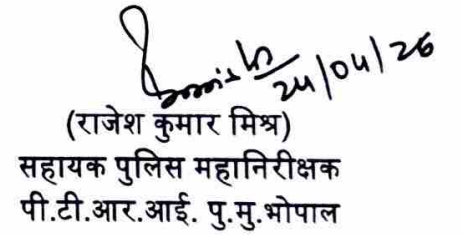 24/04/26
(राजेश कुमार मिश्र)
सहायक पुलिस महानिरीक्षक
पी.टी.आर.आई. पु.मु.भोपाल